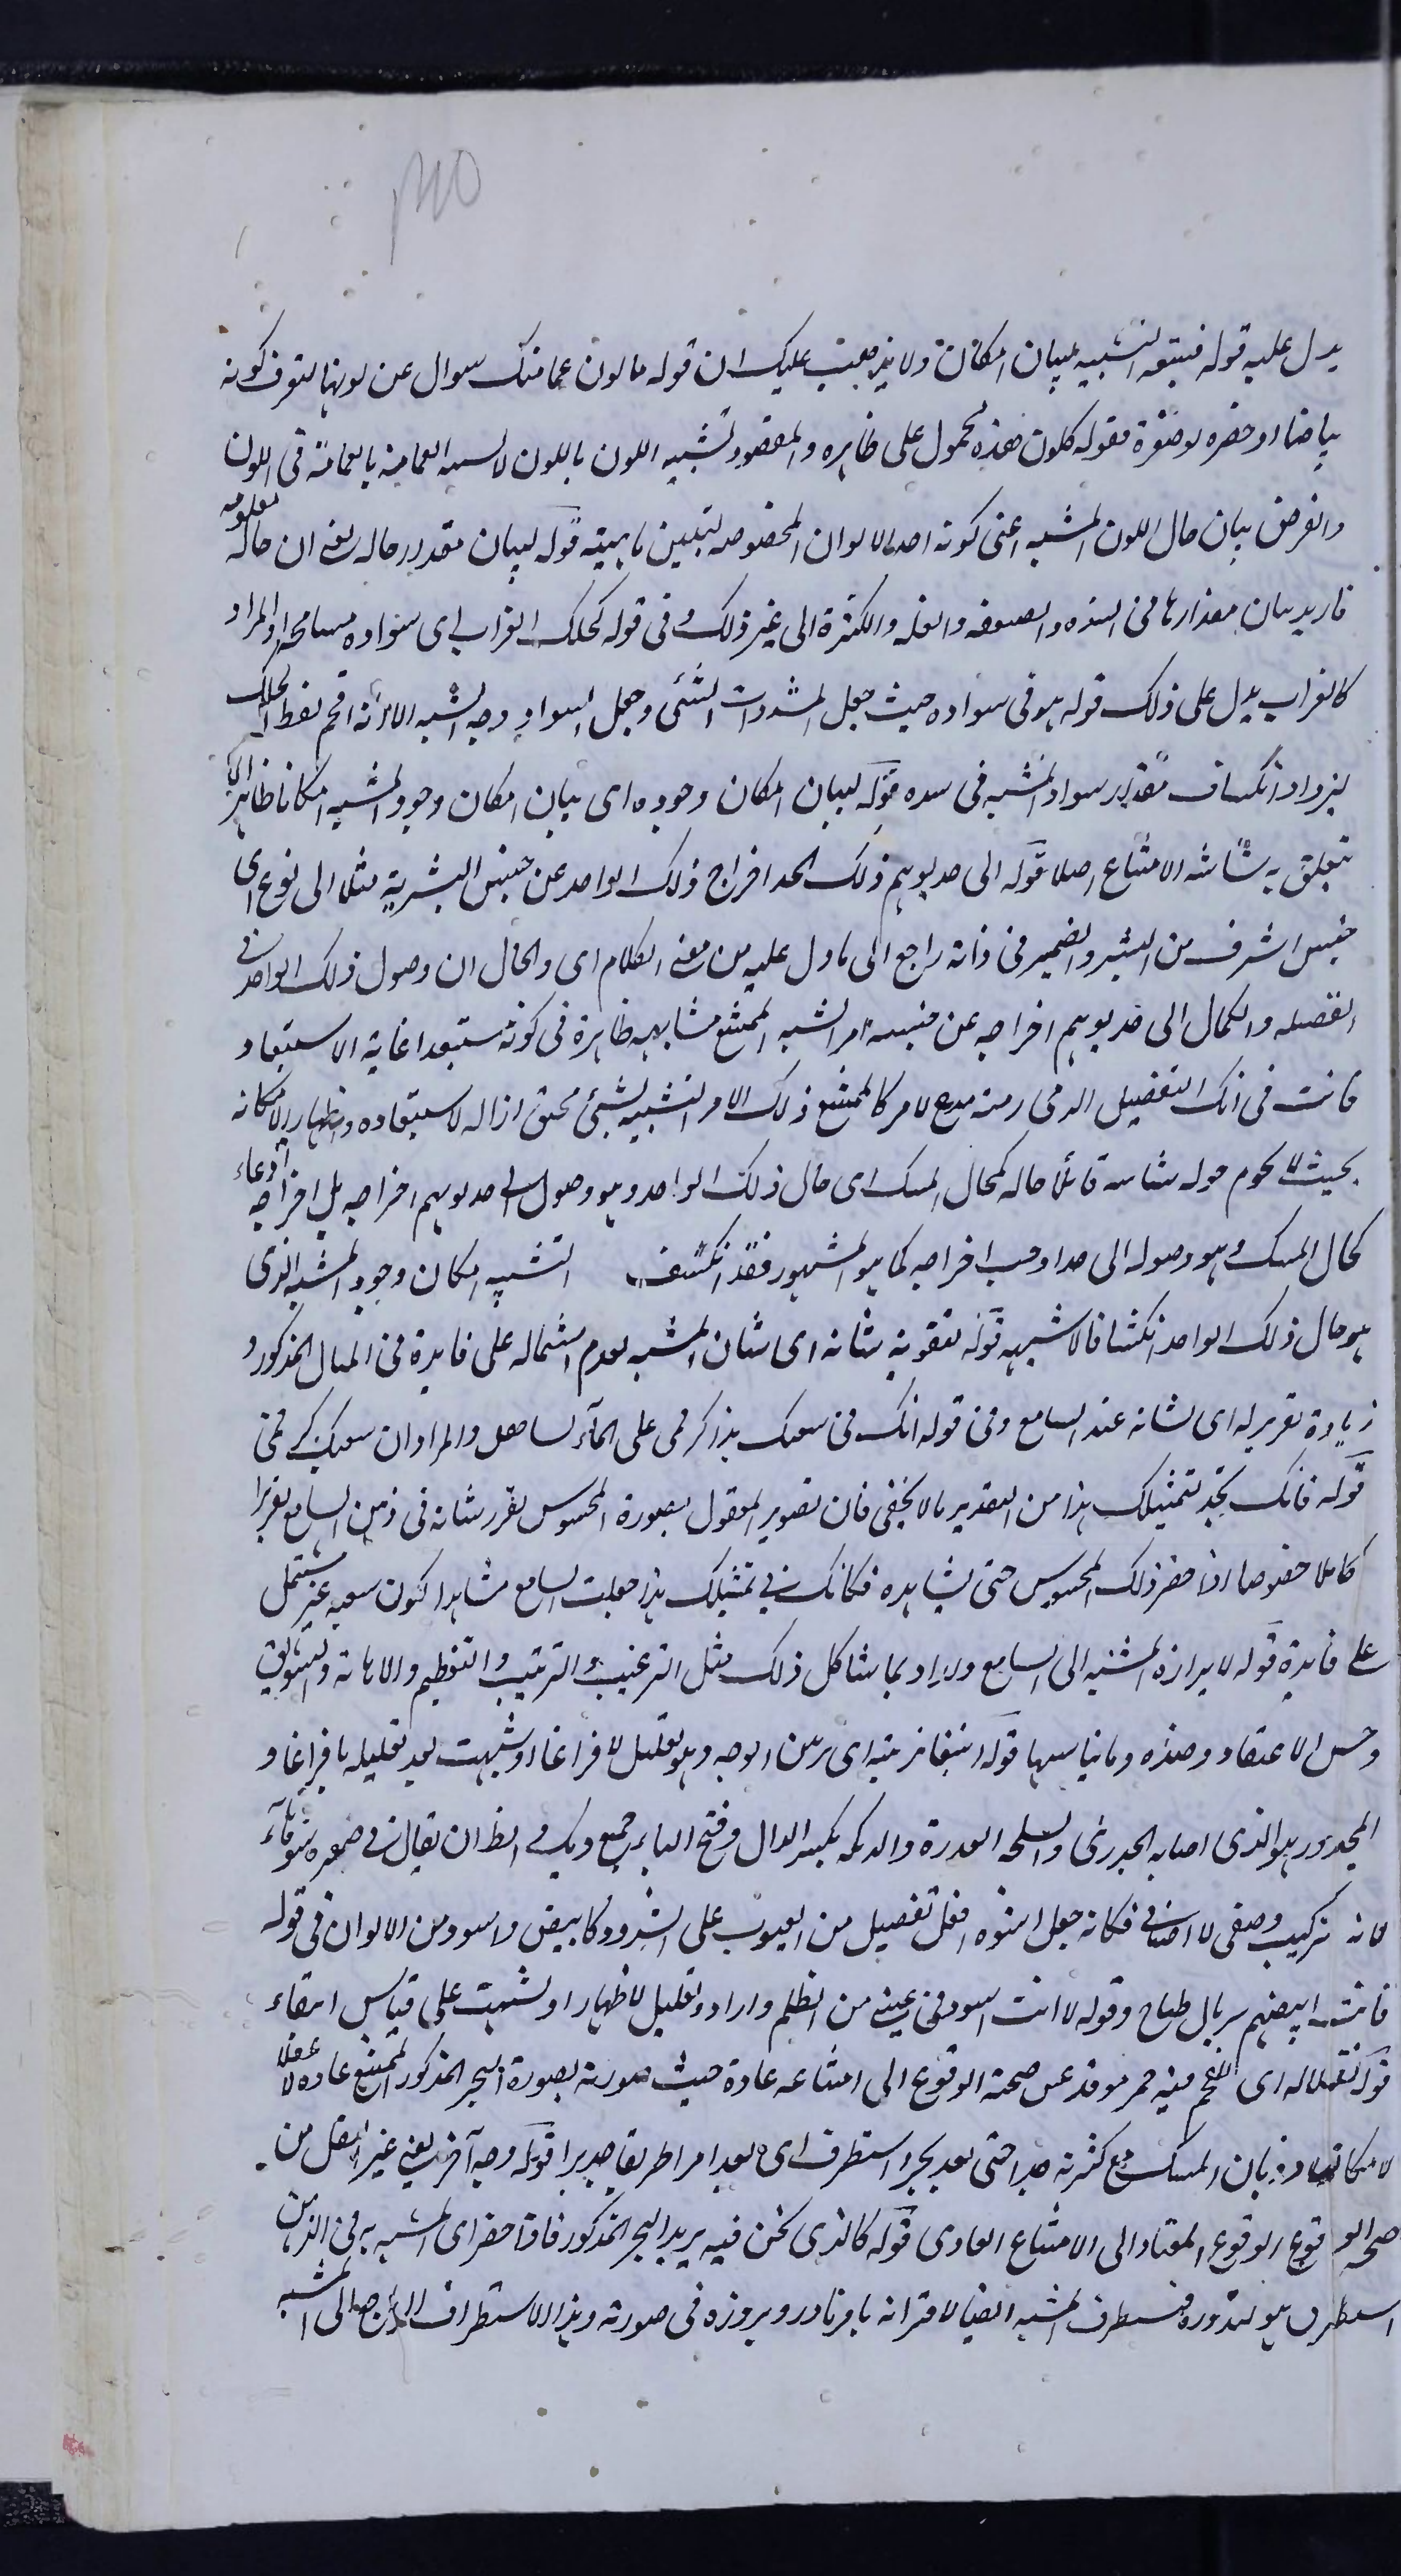 يدل عليه قوله فيتبعه التشبيه لبيان امكانه ولا يذهب عليك ان قوله ما لون عمامتك سوال عن لونها لتعرف كونه
بياضا او خضرة او صفرة فقوله كلون هذه محمول على ظاهره والمقصود تشبيه اللون باللون لا تشبيه العمامة بالعمامة في اللون
والغرض بيان حال اللون المشبه اعنى كونه احد الالوان المخصوصه لتبيين ماهيته قوله لبيان مقدار حاله يعنى ان حاله معلومه
فاريد بيان مقدارها فى الشدة والضعف والقله والكثرة الى غير ذلك وفى قوله كحلك الغراب اى سواده مسامحه والمراد
كالغراب يدل على ذلك قوله هو فى سواده حيث جعل المشبه ذات الشئ وجعل السواد وجه الشبه الا انه اقحم لفظ الحلك
ليزداد انكشاف مقدار سواد المشبه فى شده قوله لبيان امكان وجوده اى بيان امكان وجود المشبه امكانا ظاهرا لا
يتعلق به شائبة الامتناع اصلا قوله الى حد يوهم ذلك الحد اخراج ذلك الواحد عن جنس البشرية مثلا الى نوع اى
جنس اشرف من البشر والضمير فى ذاته راجع الى ما دل عليه من معنى الكلام اى والحال ان وصول ذلك الواحد فى
الفضيله والكمال الى حد يوهم اخراجه عن جنسه امر اشبه الممتنع مشابهه ظاهرة فى كونه مستبعدا غاية الاستبعاد
فانت فى ذلك التفضيل الذى رمته مدع لامر كالممتنع ذلك الامر التشبيه لشئ محقق ازالة لاستبعاده واظهارا لامكانه
بحيث لا يحوم حوله شائبه قائلا حاله كحال المسك اى حال ذلك الواحد وهو وصول الى حد يوهم اخراجه بل اخراجه ادعاء
كحال المسك وهو وصوله الى حد اوجب اخراجه كما هو المشهور فقد انكشف التشبيه امكان وجود المشبه الذى
هو حال ذلك الواحد انكشافا لا شبهة قوله تقوية شانه اى شان المشبه لعدم اشتماله على فايدة فى المثال المذكور و
زيادة تقرير له اى لشانه عند السامع وفى قوله انك فى سعيك هذا كرقمى على الماء تساهل والمراد ان سعيك كرقمى
قوله فانك تجد لتمثيلك هذا من التقدير ما لا يخفى فان تصوير المعقول بصورة المحسوس يقرر شانه فى ذهن السامع تقريرا
كاملا خصوصا اذا حضر ذلك المحسوس حتى يشاهده فكانك فى تمثيلك هذا جعلت السامع مشاهدا لكون سعيه غير مشتمل
على فايدة قوله لابرازه المشبه الى السامع والمراد بما شاكل ذلك مثل الترغيب والترهيب والتعظيم والاهانة والتشويق
وحسن الاعتقاد وضده وما يناسبها قوله ابتغاء تزيينه اى تزيين الوجه وهو تعليل لافراغا او شبهت بعد تعليله بافراغا و
المجدور هو الذى اصابه الجدرى والسلحه العذرة والديكه بكسر الدال وفتح الياء جمع ديك و الظ ان يقال فى صورة شوهاء
لانه تركيب وصفى لا اضافى فكانه جعل اشوه افعل تفضيل من العيوب على الشذوذ كابيض واسود من الالوان فى قوله
فانت ابيضهم سربال طباخ وقوله لانت اسود فى عينى من الظلم وارادة تعليل لاظهار او لشبهت على قياس ابتغاء
قوله نقلا له اى لفحم فيه جمر موقد عن صحة الوقوع الى امتناعه عادة حيث صورته بصورة البحر المذكور الممتنع عادة لا عقلا
لامكان ذوبان المسك مع كثرته جدا حتى يعد بحرا استطرف اى يعد امرا طريفا جديدا قوله وجه آخر يعنى غير النقل من
صحة الوقوع الوقوع المعتاد الى الامتناع العادى قوله كالذى نحن فيه يريد البحر المذكور فاذا حضر اى المشبه به فى الذهن
استطرف هو لندوره فيستطرف المشبه ايضا لاقترانه بامر نادر وبروزه فى صورته وهذا الاستطراف الراجع الى المشبه